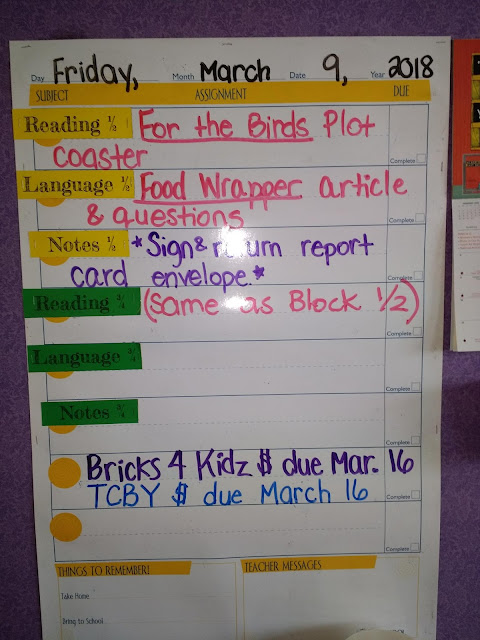 Day Friday, Month March Date 9, Year 2018
SUBJECT ASSIGNMENT DUE
Reading 1/2 For the Birds Plot
coaster
Complete
Language 1/2 Food Wrapper article
& questions
Complete
Notes 1/2 *Sign & return report
card envelope.*
Complete
Reading 3/4 (Same as Block 1/2)
Complete
Language 3/4
Complete
Notes 3/4
Complete
Bricks 4 Kidz $ due Mar. 16
TCBY $ due March 16
Complete
Complete
THINGS TO REMEMBER! TEACHER MESSAGES
Take Home
Bring to School